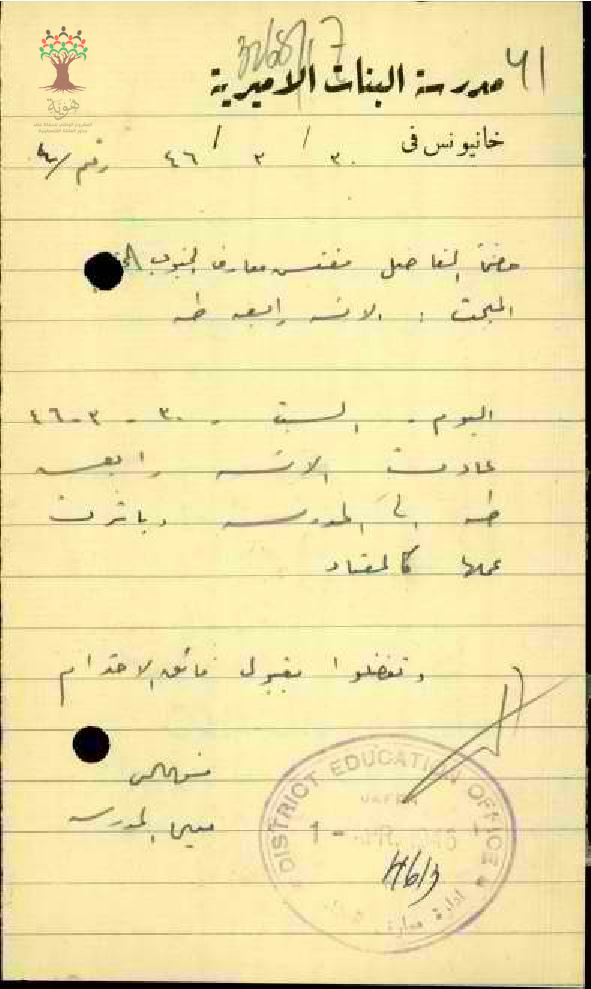 هوية
61
3168/17
مدرسة البنات الاميرية
خانيونس فى ٣٠ / ٣ / ٤٦ رقم /
حضرة الفاضل مفتش معارف الجنوب
المبحث : الانسة رابعة طه
اليوم - السبت - ٣٠ - ٣ - ٤٦
عادت الانسة رابعة
طه الى المدرسة وباشرت
عملها كالمعتاد
وتفضلوا بقبول فائق الاحترام
المدرسة
DISTRICT EDUCATION OFFICE
JAFFA
1 - APR 1946
ادارة معارف